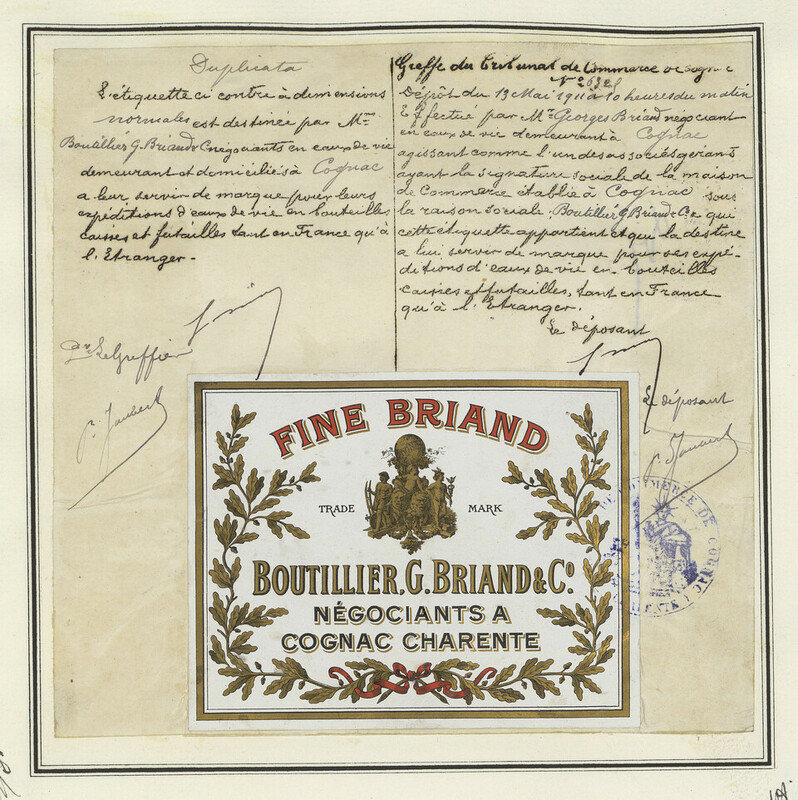 Duplicata
L'étiquette ci contre à dimensions
normales est destinée par Mrs
Boutillier G. Briand & Co négociants en eaux de vie
demeurant et domiciliés à Cognac
a leur servir de marque pour leurs
expéditions d'eaux de vie en bouteilles
caisses et futailles tant en France qu'à
l'Etranger -
Le Greffier
Greffe du Tribunal de Commerce de Cognac
No
Dépôt du 13 Mai 1911 à 10 heures du matin
Effectué par Mr Georges Briand négociant
en eaux de vie demeurant à Cognac
agissant comme l'un des associés gérants
ayant la signature sociale de la maison
de Commerce établie à Cognac sous
la raison sociale Boutillier G. Briand & Co qui
cette étiquette appartient et qui la destine
a lui servir de marque pour ses expé-
ditions d'eaux de vie en bouteilles
caisses et futailles, tant en France
qu'à l'Etranger.
Le déposant
Le déposant
FINE BRIAND
TRADE MARK
BOUTILLIER, G. BRIAND & Co.
NÉGOCIANTS A
COGNAC CHARENTE
COMMERCE DE COGNAC